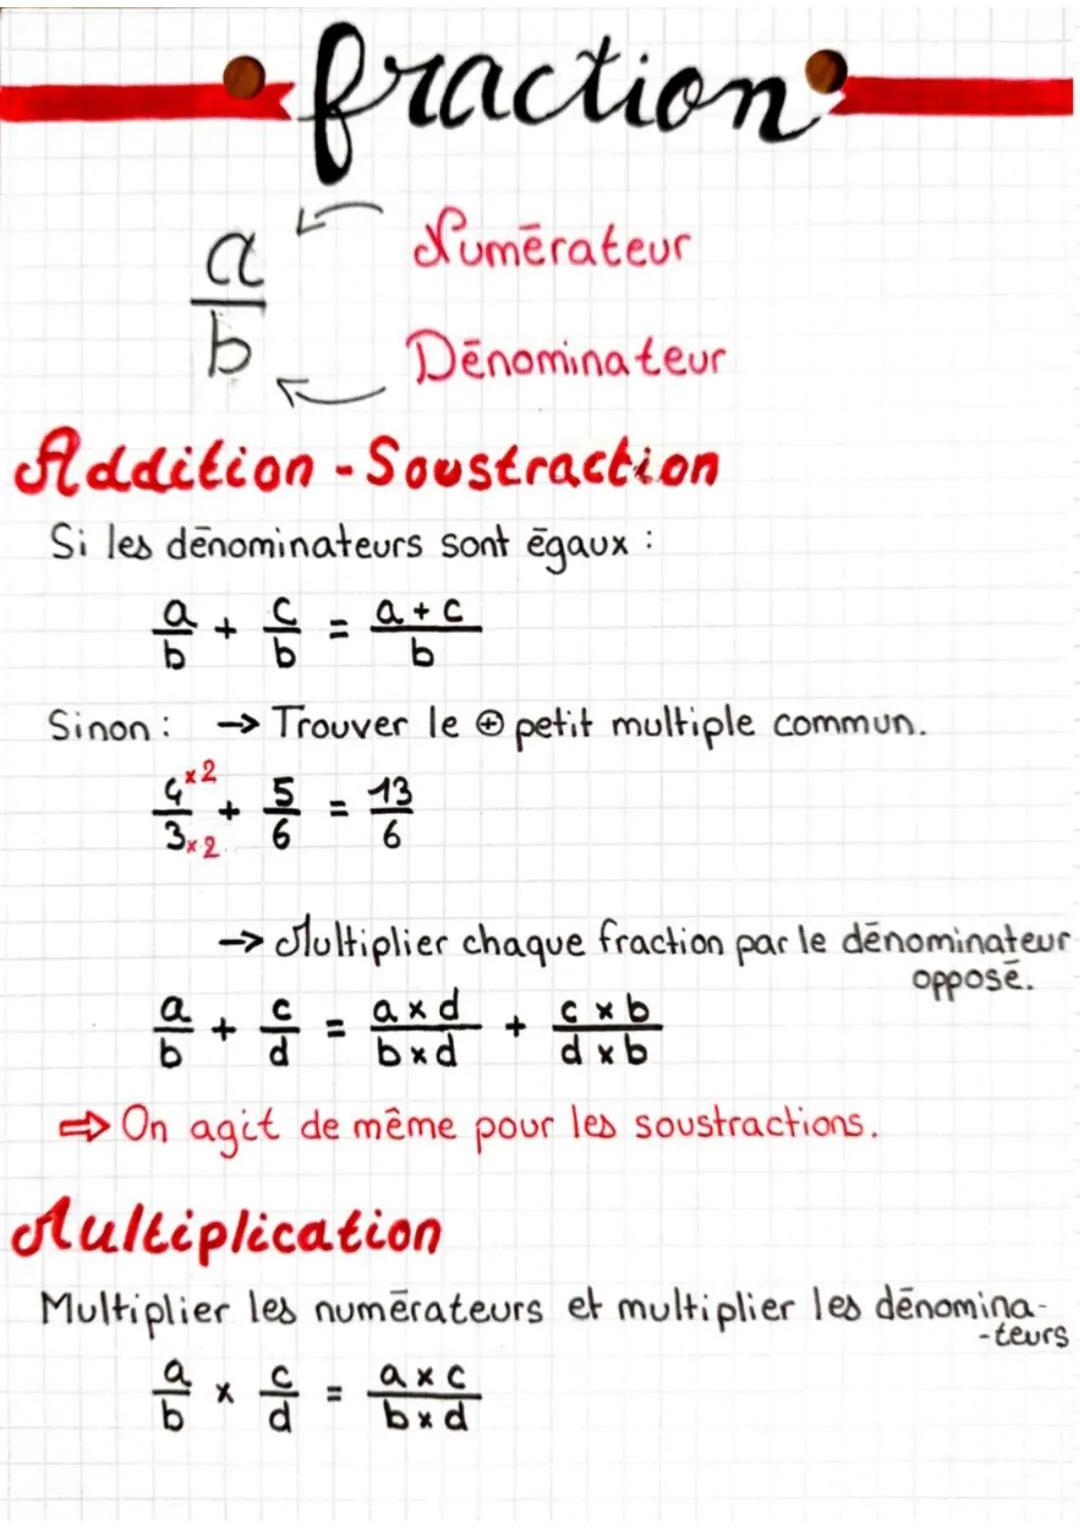 fraction
a/b
Numērateur
Dēnominateur
Addition - Soustraction
Si les dēnominateurs sont ēgaux :
a/b + c/b = a + c/b
Sinon : → Trouver le ⊕ petit multiple commun.
4×2/3×2 + 5/6 = 13/6
→ Multiplier chaque fraction par le dēnominateur
opposē.
a/b + c/d = a × d/b × d + c × b/d × b
⇒ On agit de même pour les soustractions.
Multiplication
Multiplier les numērateurs et multiplier les dēnomina-
-teurs
a/b × c/d = a × c/b × d